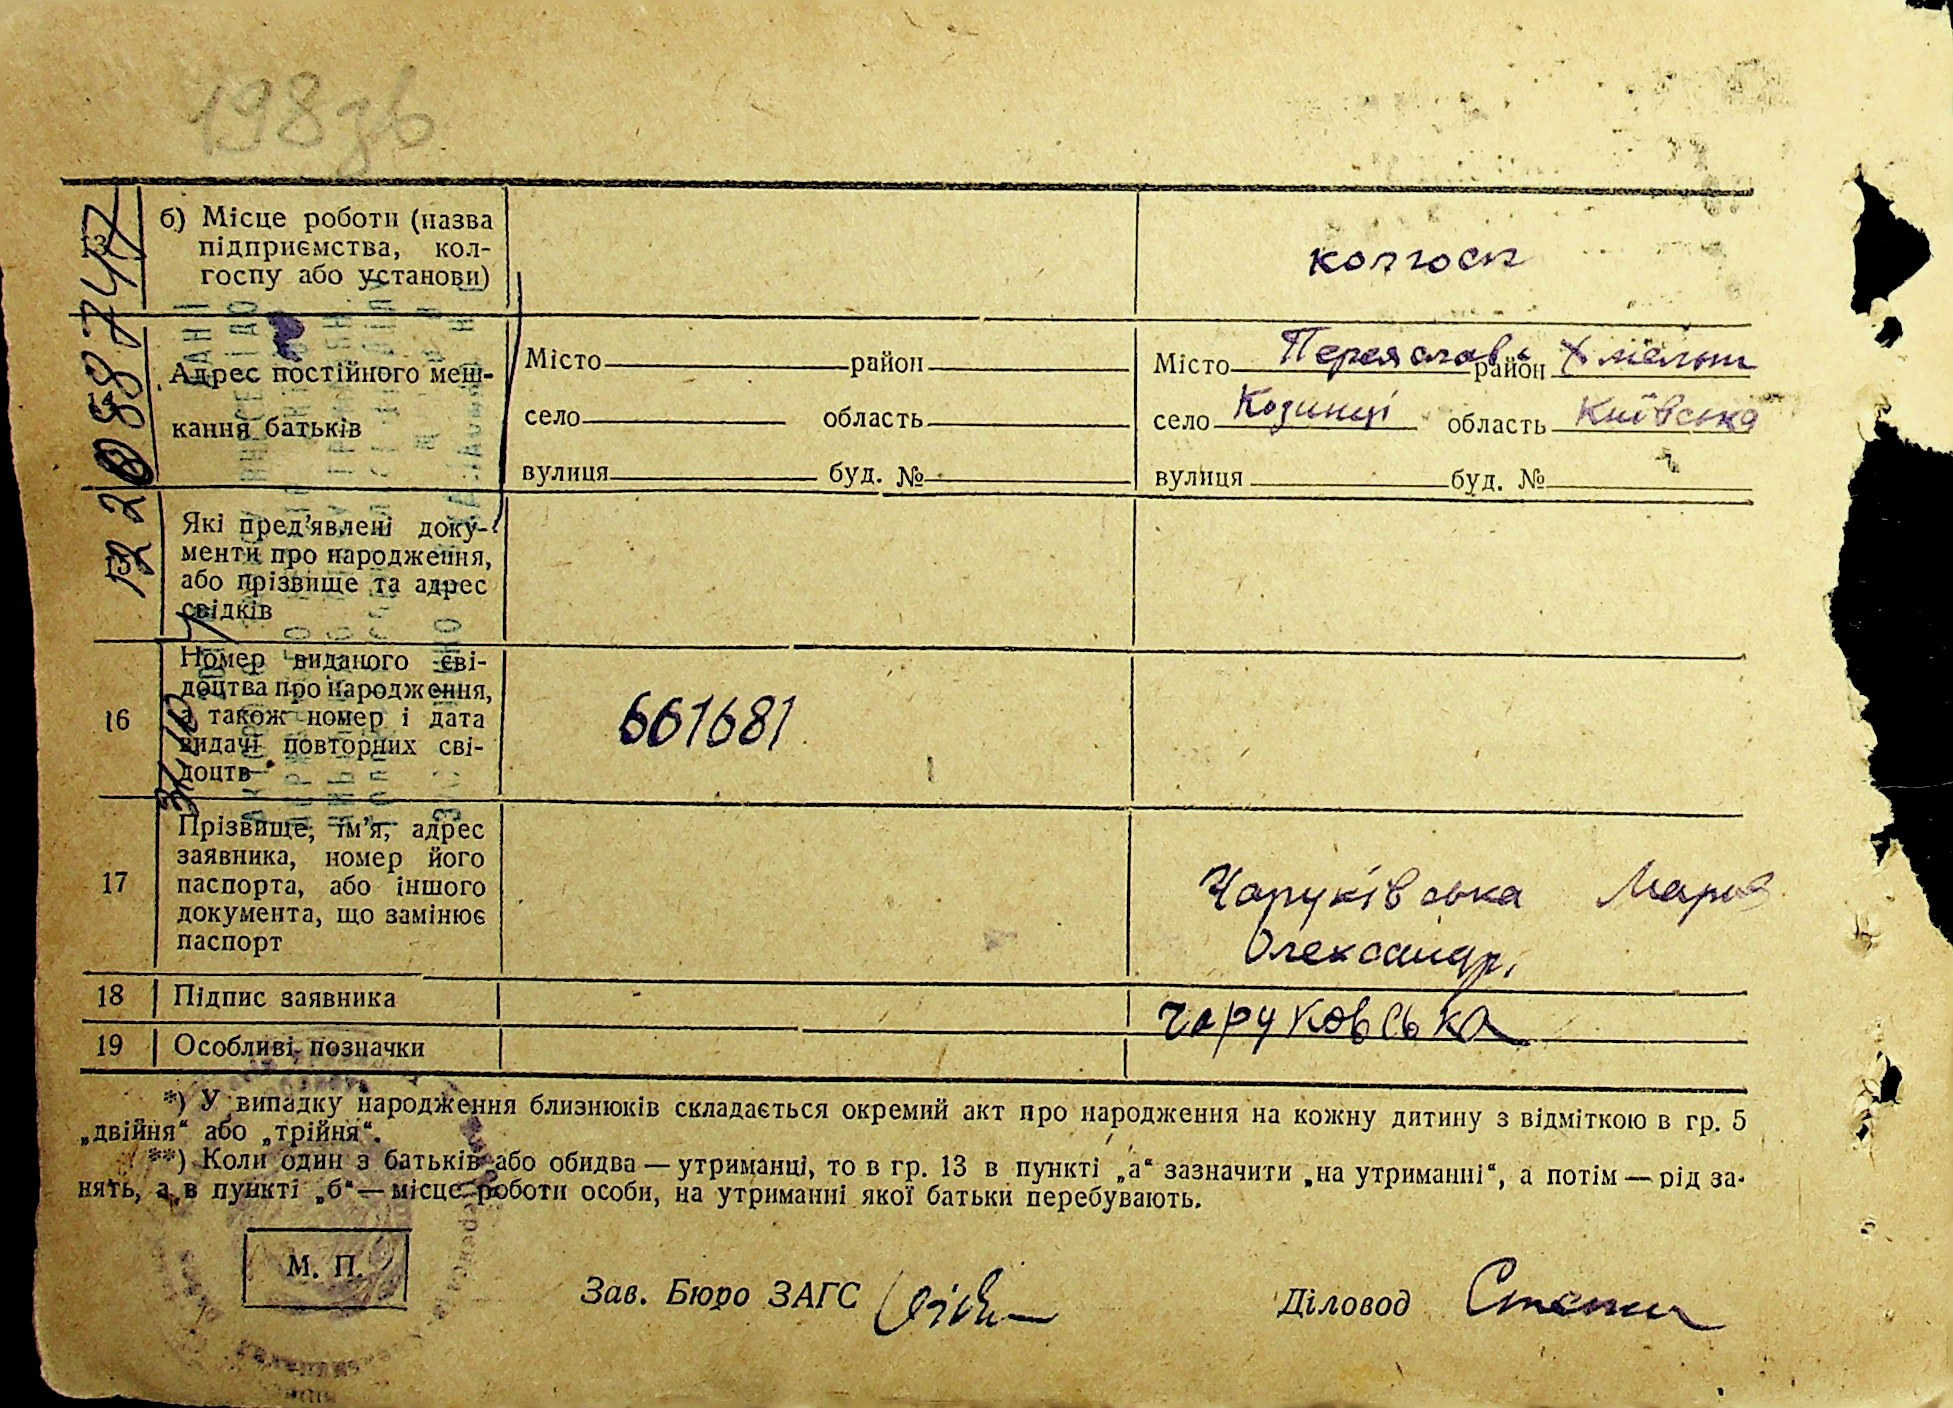 198зв
13
б) Місце роботи (назва
підприємства, кол-
госпу або установи)
колгосп
Адрес постійного меш-
кання батьків
Місто район
село область
вулиця буд. №
Місто Переяслав- район Хмельн
село Козинці область Київська
вулиця буд. №
15
Які пред’явлені доку-
менти про народження,
або прізвище та адрес
свідків
16
Номер виданого сві-
доцтва про народження,
а також номер і дата
видачі повторних сві-
доцтв
661681
17
Прізвище, ім’я, адрес
заявника, номер його
паспорта, або іншого
документа, що замінює
паспорт
Чаруківська Мария
Олександр.
18 Підпис заявника
чаруковська
19 Особливі позначки
*) У випадку народження близнюків складається окремий акт про народження на кожну дитину з відміткою в гр. 5
„двійня“ або „трійня“.
**) Коли один з батьків або обидва — утриманці, то в гр. 13 в пункті „а“ зазначити „на утриманні“, а потім — рід за-
нять, а в пункті „б“ — місце роботи особи, на утриманні якої батьки перебувають.
М. П.
Зав. Бюро ЗАГС
Діловод